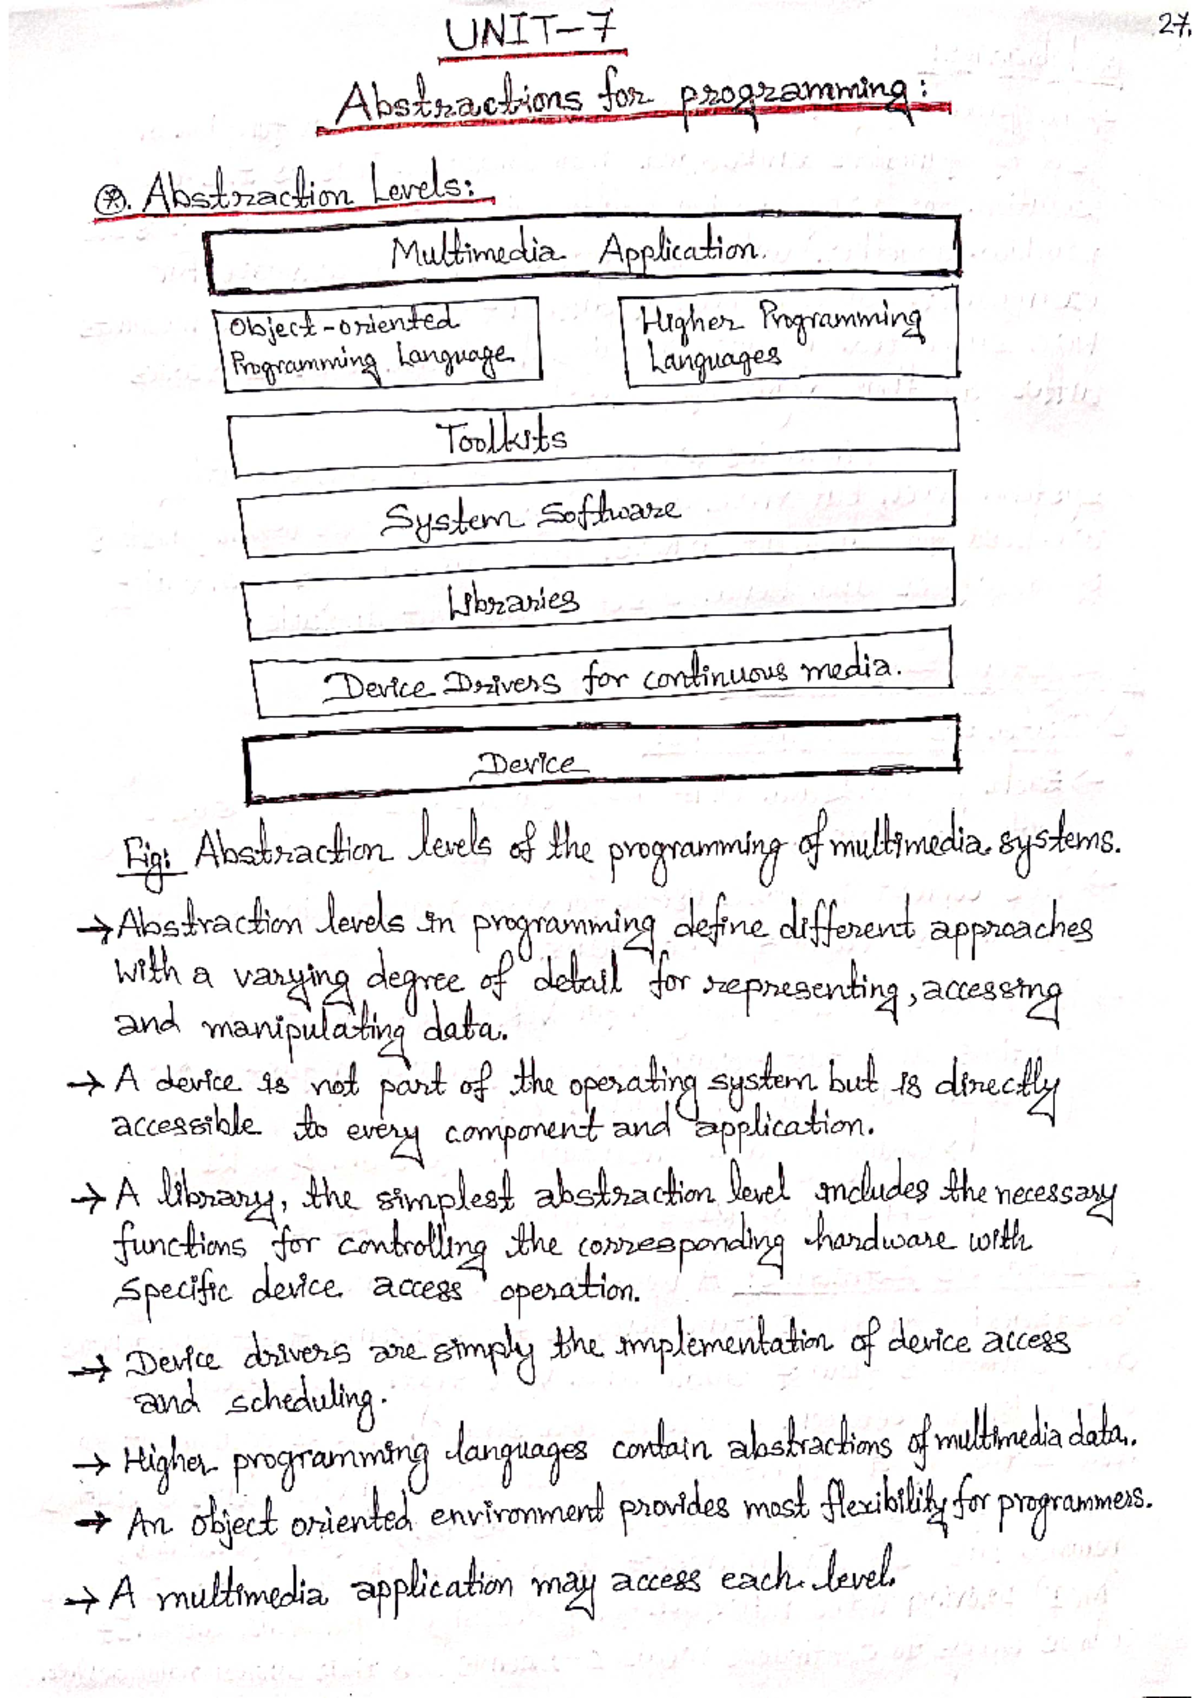 27.
UNIT-7
Abstractions for programming:
⊛. Abstraction Levels:
Multimedia Application.
Object-oriented
Programming Language
Higher Programming
Languages
Toolkits
System Software
Libraries
Device Drivers for continuous media.
Device
Fig: Abstraction levels of the programming of multimedia systems.
→ Abstraction levels in programming define different approaches
with a varying degree of detail for representing, accessing
and manipulating data.
→ A device is not part of the operating system but is directly
accessible to every component and application.
→ A library, the simplest abstraction level includes the necessary
functions for controlling the corresponding hardware with
specific device access operation.
→ Device drivers are simply the implementation of device access
and scheduling.
→ Higher programming languages contain abstractions of multimedia data.
→ An object oriented environment provides most flexibility for programmers.
→ A multimedia application may access each level.